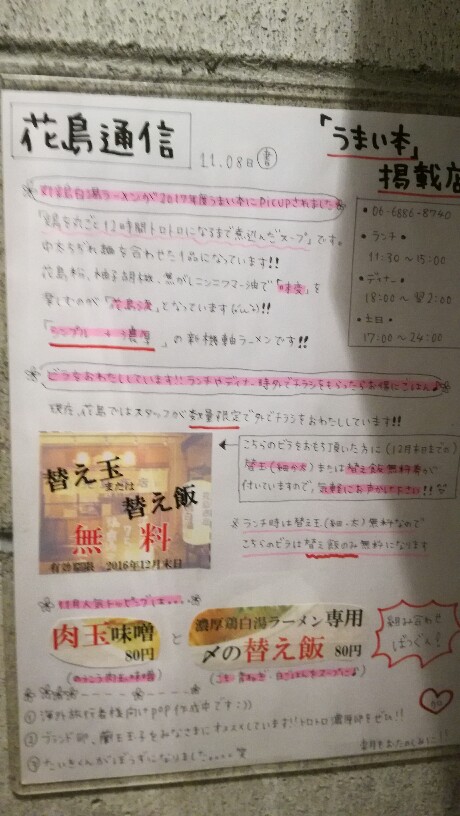 花島通信
11.08日 書
「うまい本」
掲載店
• 06-6886-8740
• ランチ •
11:30～15:00
• ディナー •
18:00～翌2:00
• 土日 •
17:00～24:00
鶏白湯ラーメンが2017年度うまい本にPICUPされました
「鶏を丸ごと12時間トロトロになるまで煮込んだスープ」です。
中太ちぢれ麺を合わせた1品になっています!!
花島粉、柚子胡椒、焦がしニンニクマー油で「味変」を
楽しむのが「花島流」となっています
「シンプル + 濃厚」の新機軸ラーメンです!!
ビラをおわたししています!! ランチやディナー時外でチラシをもらったらお得にごはん♪
現在、花島ではスタッフが数量限定で外でチラシをおわたししています!!
替え玉
または
替え飯
無料
有効期限 2016年12月末日
こちらのビラをおもち頂いた方に(12月末日までの)
替玉(細か太)または替え飯無料券が
付いていますので、気軽にお声がけ下さい!!
※ランチ時は替え玉(細・太)無料なので
こちらのビラは替え飯のみ無料になります
11月人気トッピングは....
肉玉味噌
80円
と
濃厚鶏白湯ラーメン専用
〆の替え飯 80円
組み合わせ
ばつぐん!
① 海外旅行者様向けpop作成中です:))
② ブランド卵、蘭王玉子をみなさまにオススメしています!!トロトロ濃厚卵をぜひ!!
③ たいきくんがぼうずになりました....笑
来月もおたのしみに!!